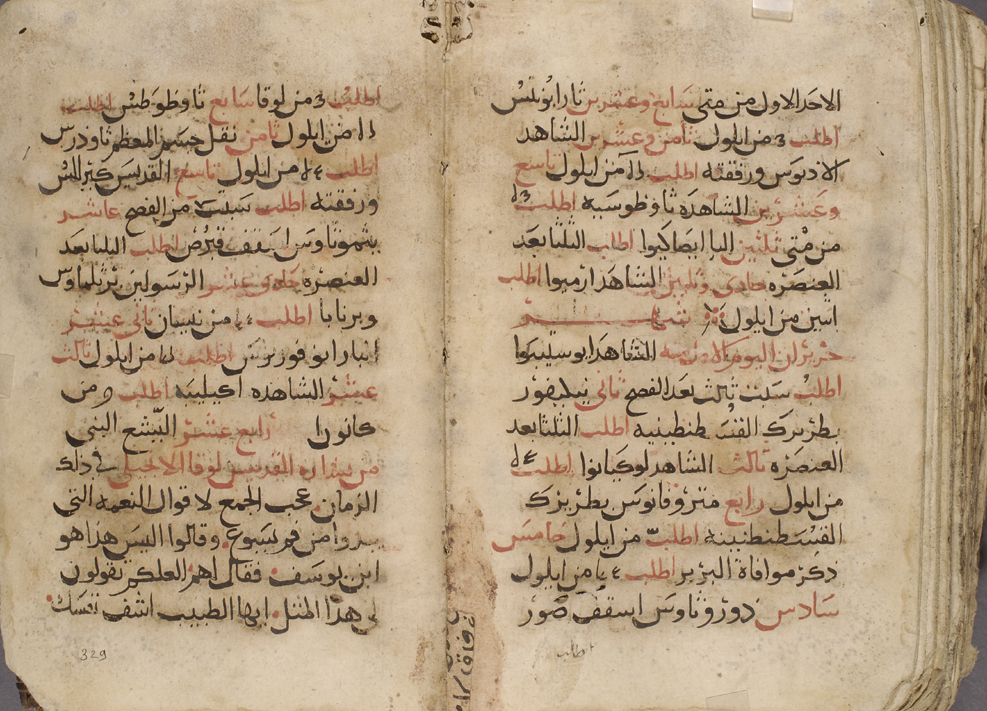 الاحد الاول من متى سابع وعشرين تارابونتس
اطلب 3 من ايلول ثامن وعشرين الشاهد
لادنوس ورفقته اطلب ١١ من ايلول تاسع
وعشرين الشاهده ثاوظوسيه اطلب
من متى ثلثين اليا ايصاكيوا اطلب الثلثا بعد
العنصره حادى وثلثين الشاهد ارميوا اطلب
اثنين من ايلول شهر
حزيران اليوم الشاهد ابوستينوا
اطلب سبت ثالث بعد الفصح ثانى نيكيفور
بطريرك القسطنطينيه اطلب الثلثا بعد
العنصره ثالث الشاهد لوكيانوا اطلب
من ايلول رابع متروفانوس بطريرك
القسطنطينيه اطلب من ايلول خامس
ذكر موافاة البربر اطلب من ايلول
سادس دوروثاوس اسقف صور
اطلب
اطلب 3 من لوقا سابع ثاوظوطس اطلب
١١ من ايلول ثامن نقل جسم المعظم ثاودرس
اطلب من ايلول تاسع القديس كيرللس
ورفقته اطلب سبت من الفصح عاشر
تيموثاوس اسقف قبرص اطلب الثلثا بعد
العنصره حادى عشر الرسولين برثلماوس
وبرنابا اطلب من نيسان ثانى عشر
انبار ابوفوريوس اطلب من ايلول ثالث
عشر الشاهده اكيلينه اطلب من
كانون ا رابع عشر اليشع النبي
من بشارة القديس لوقا الانجيلي في ذلك
الزمان عجب الجمع لاقوال النعمه التي
بدوا من فم يسوع وقالوا اليس هذا هو
ابن يوسف فقال لهم لعلكم تقولون
لي هذا المثل ايها الطبيب اشف نفسك
329